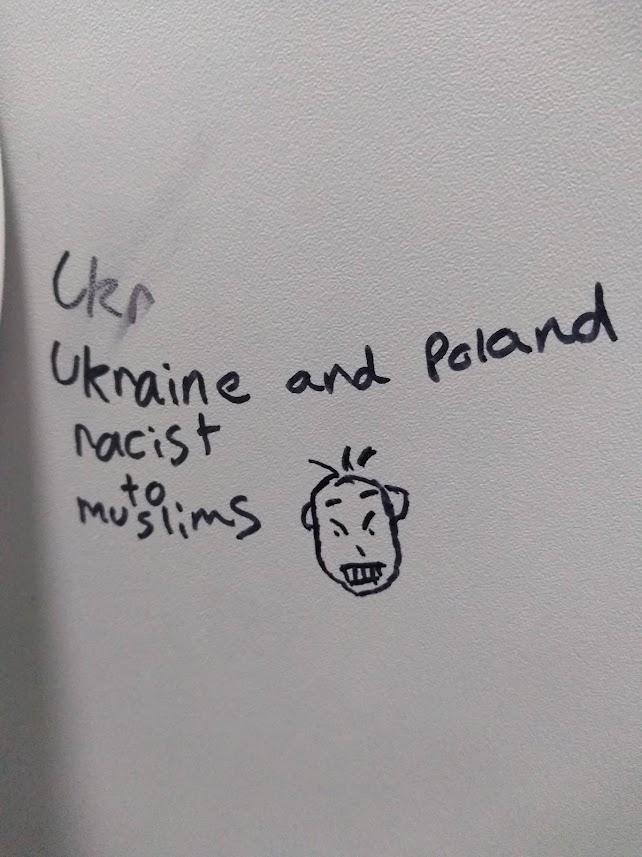 Ukr
Ukraine and Poland
racist
to
muslims